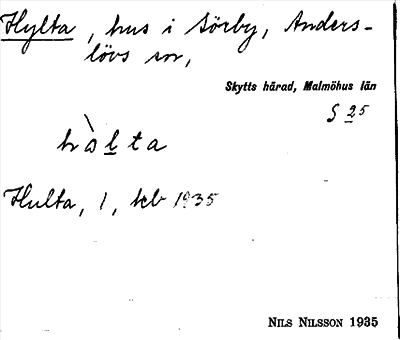 Hylta, hus i Sörby, Anders-
lövs sn,
Skytts härad, Malmöhus län
S 25
hὰlta
Hulta, 1, tcb 1935
NILS NILSSON 1935